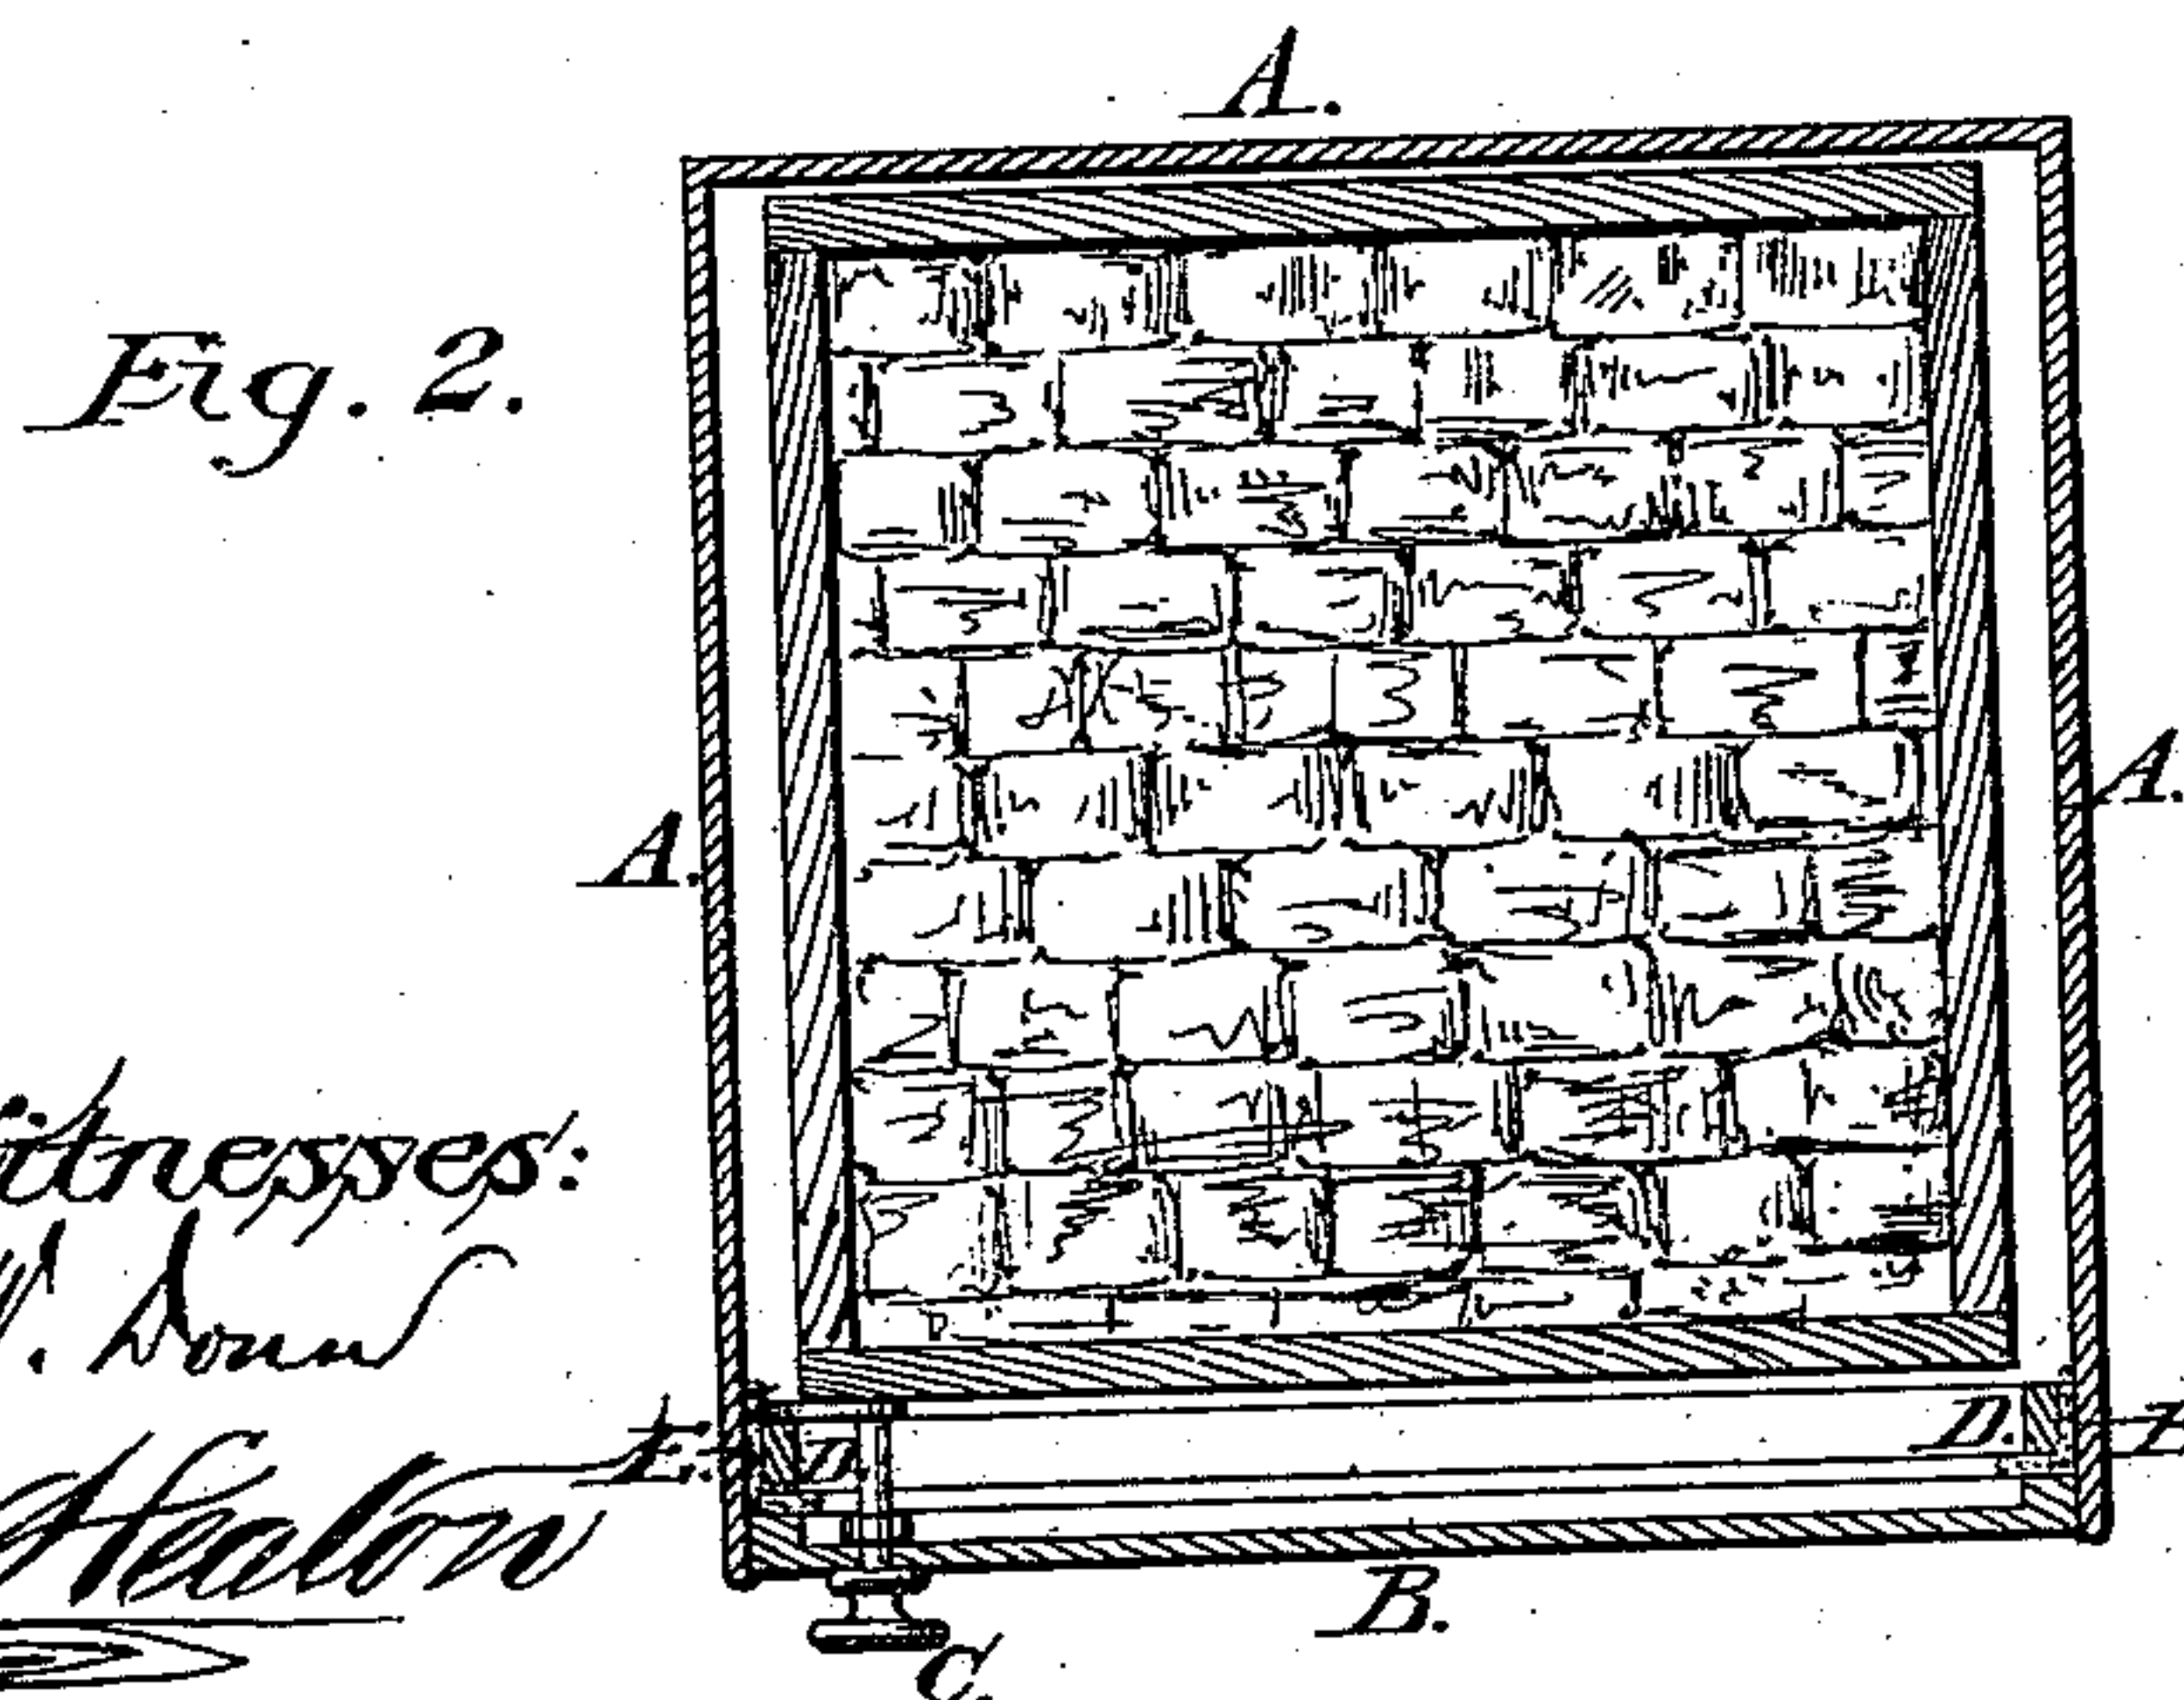 A.
Fig. 2.
A.
A.
itnesses:
E.
D.
D.
B.
C.